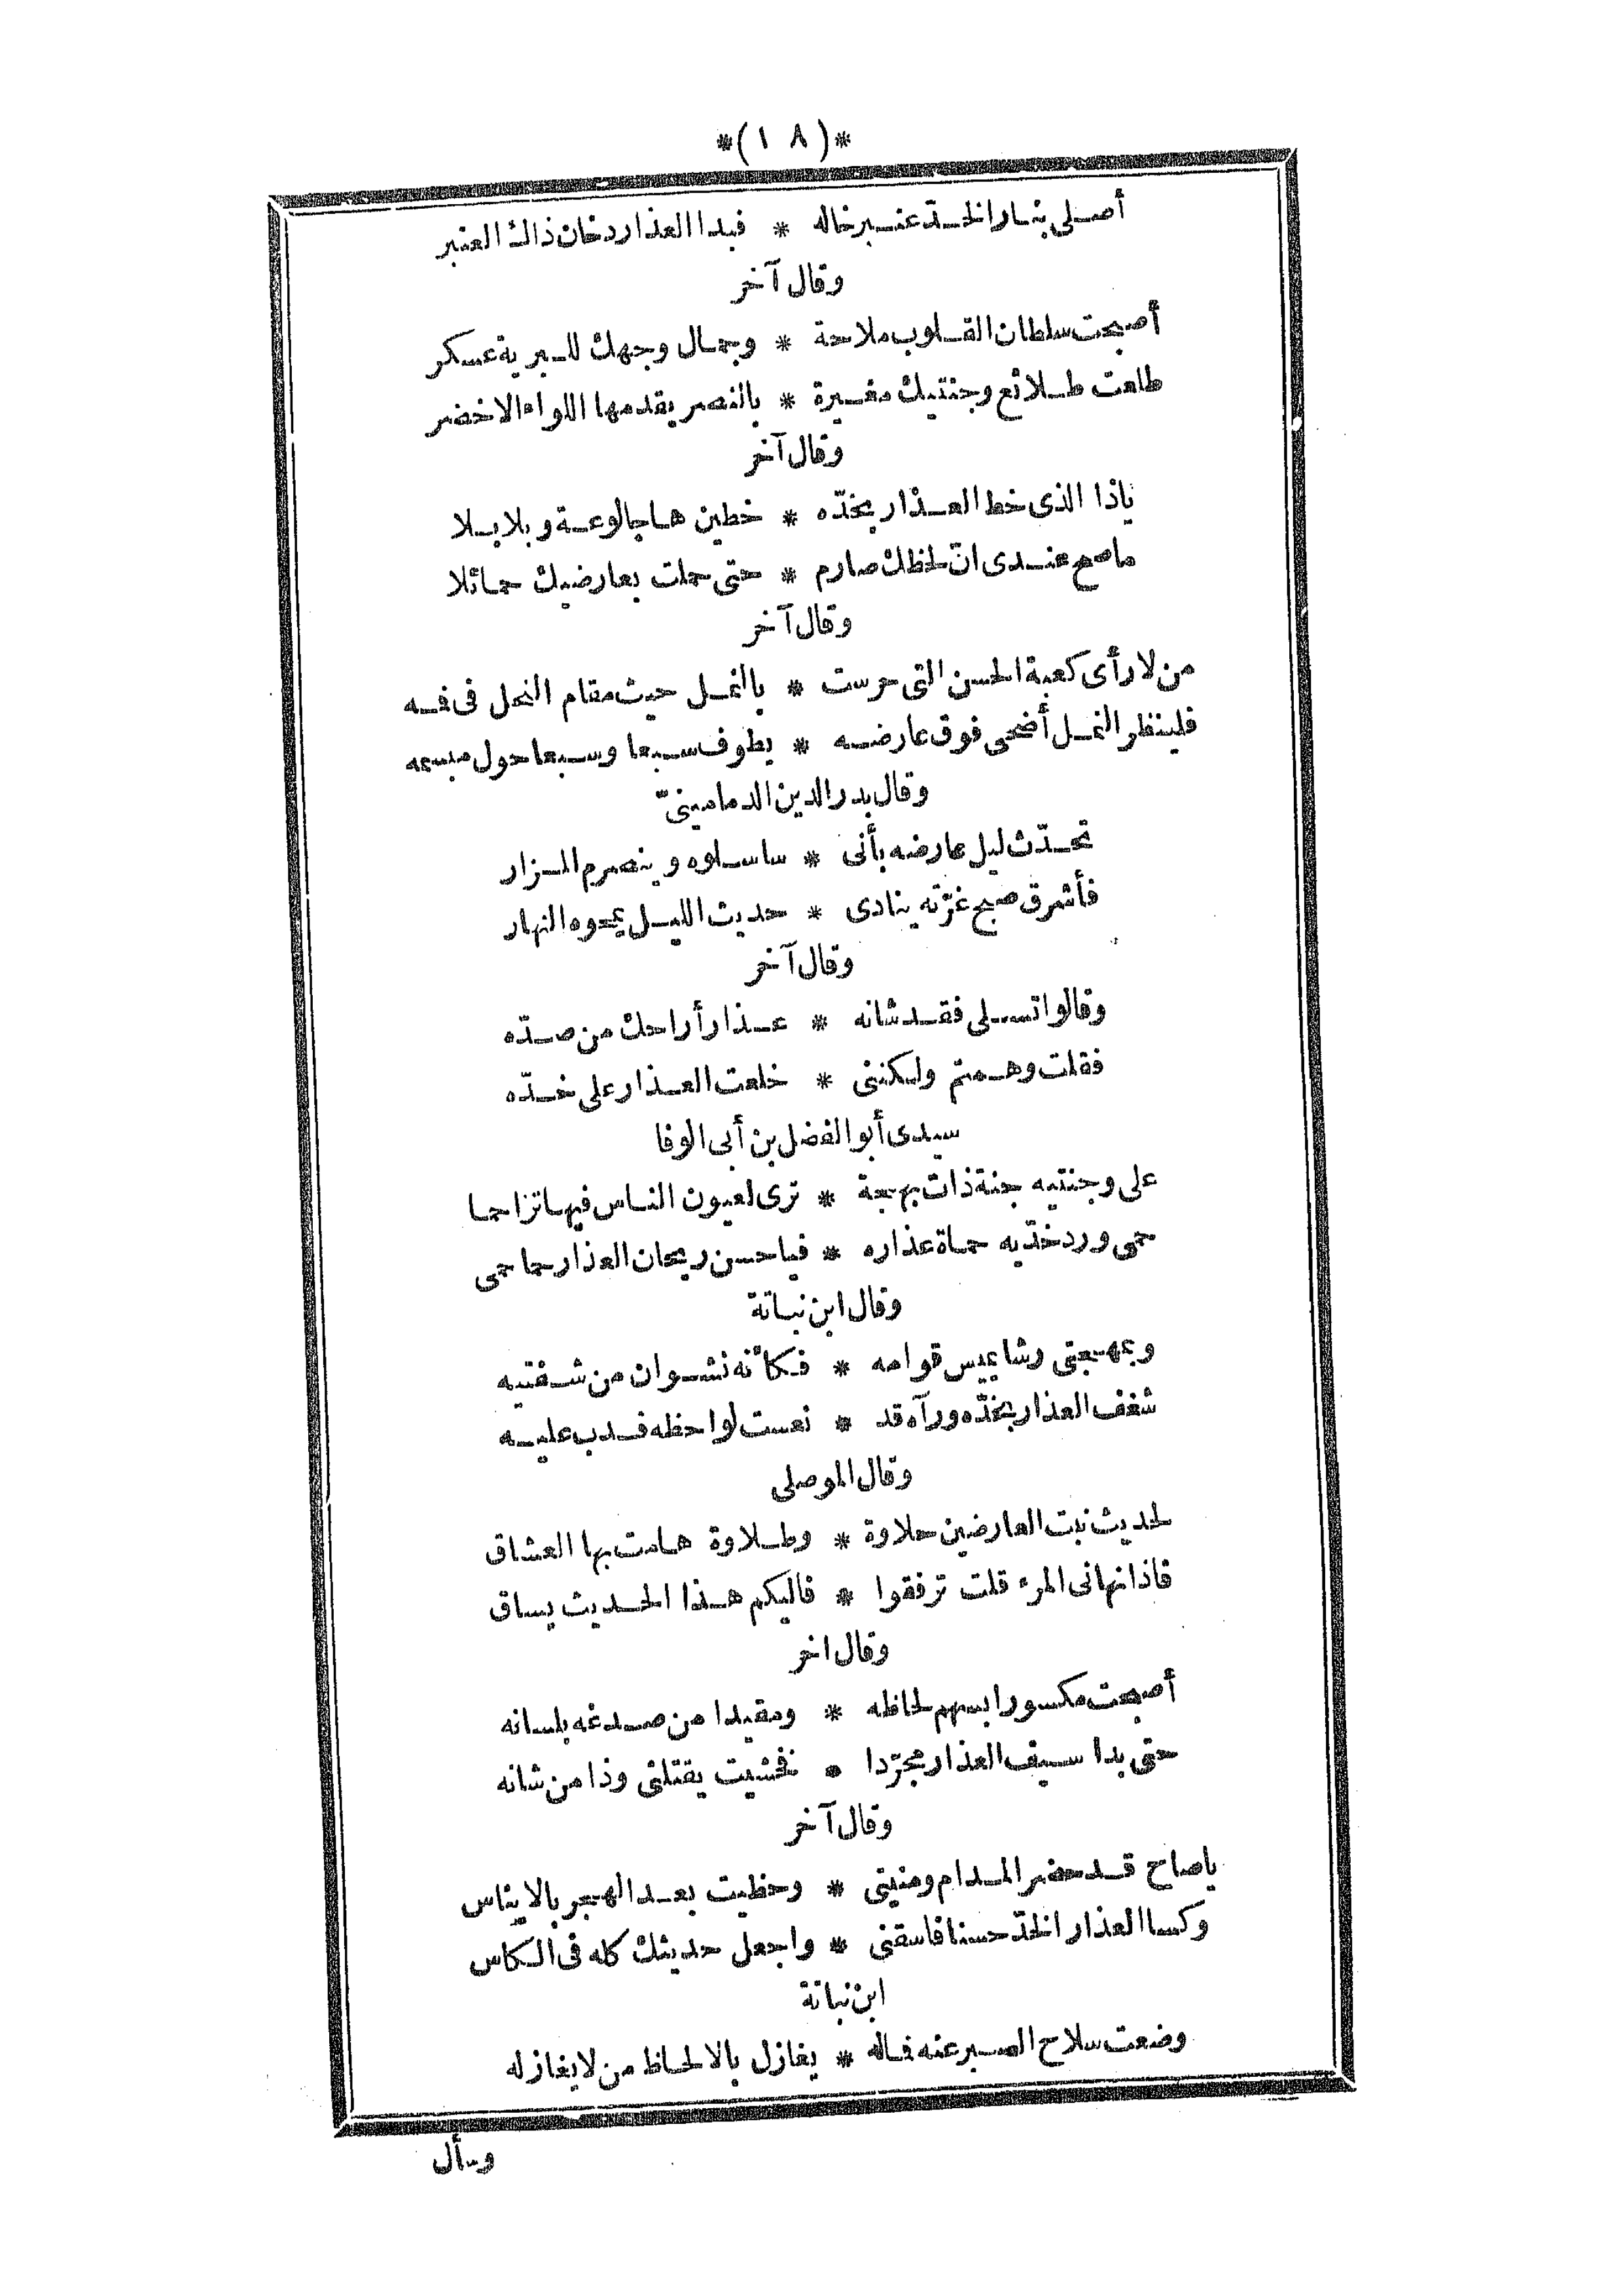 *(١٨)*
أصلى بنار الخدّ عنبر خاله * فبدا العذار دخان ذاك العنبر
وقال آخر
أصبحت سلطان القلوب ملاحة * وجمال وجهك للبرية عسكر
طلعت طلائع وجنتيك مغيرة * بالنصر يقدمها اللواء الاخضر
وقال آخر
ياذا الذى خط العذار بخدّه * خطين هاجا لوعة وبلابلا
ماصح عندى انّ لحظك صارم * حتى حملت بعارضيك حمائلا
وقال آخر
من لا رأى كعبة الحسن التى حرست * بالنمل حيث مقام النحل فى فمه
فلينظر النمل أضحى فوق عارضه * يطوف سبعا وسبعا حول مبسمه
وقال بدر الدين الدمامينىّ
تحدّث ليل عارضه بأنى * ساسلوه وينصرم المزار
فأشرق صبح غرّته ينادى * حديث الليل يمحوه النهار
وقال آخر
وقالوا تسلى فقد شانه * عذار أراحك من صدّه
فقلت وهمتم ولكننى * خلعت العذار على خدّه
سيدى أبو الفضل بن أبى الوفا
على وجنتيه جنة ذات بهجة * ترى لعيون الناس فيها تزاحما
حمى ورد خدّيه حماة عذاره * فياحسن ريحان العذار حماحمى
وقال ابن نباتة
وبمهجتى رشا يميس قوامه * فكأنه نشوان من شفتيه
شغف العذار بخدّه ورآه قد * نعست لواحظه فدب عليه
وقال الموصلى
لحديث نبت العارضين حلاوة * وطلاوة هامت بها العشاق
فاذا نهانى المرء قلت ترفقوا * فاليكم هذا الحديث يساق
وقال اخر
أصبحت مكسورا بسهم لحاظه * ومقيدا من صدغه بلسانه
حتى بدا سيف العذار مجرّدا * فخشيت يقتلنى وذا من شانه
وقال آخر
ياصاح قد حضر المدام ومنيتى * وحظيت بعد الهجر بالايناس
وكسا العذار الخدّ حسنا فاسقنى * واجعل حديثك كله فى الكاس
ابن نباتة
وضعت سلاح الصبر عنه فماله * يغازل بالالحاظ من لا يغازله
وسأل